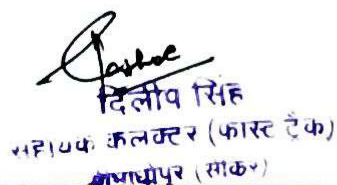 दिलीप सिंह
सहायक कलक्टर (फास्ट ट्रैक)
(सीकर)